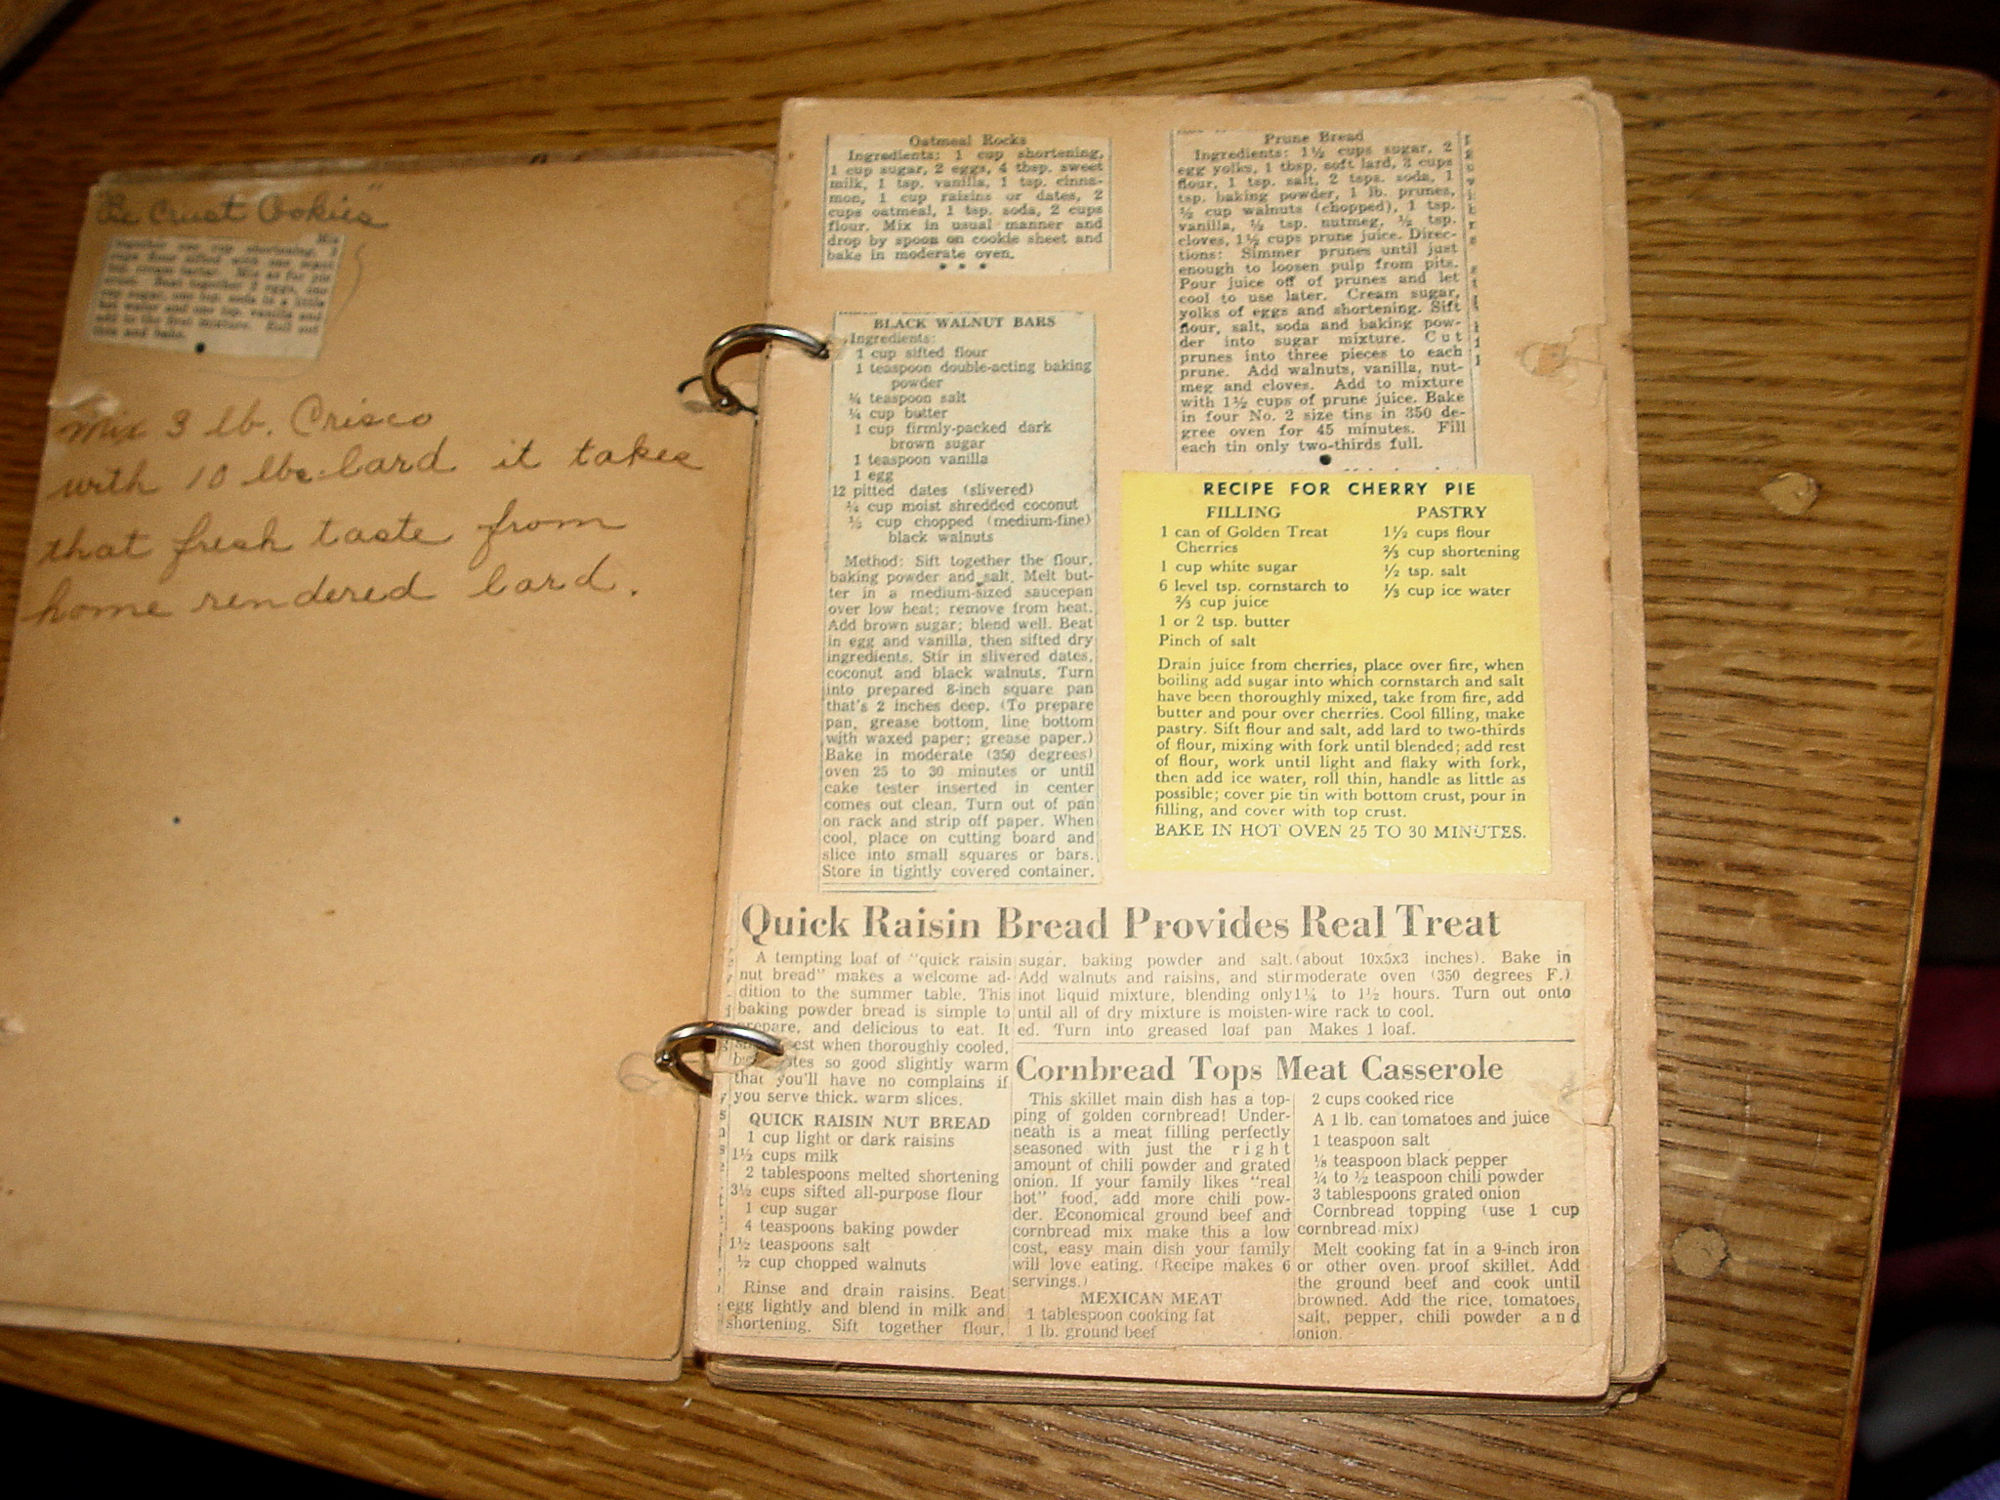 Pie Crust Cookies"
Mix
together one cup shortening, 3
cups flour sifted with one
tsp. cream tartar. Mix as for pie
crust. Beat together 2 eggs, one
cup sugar, one tsp. soda in a little
hot water and one tsp. vanilla and
add to the first mixture. Roll out
thin and bake.
Mix 3 lb. Crisco
with 10 lbs. lard it takes
that fresh taste from
home rendered lard.
Oatmeal Rocks
Ingredients: 1 cup shortening,
1 cup sugar, 2 eggs, 4 tbsp. sweet
milk, 1 tsp. vanilla, 1 tsp. cinna-
mon, 1 cup raisins or dates, 2
cups oatmeal, 1 tsp. soda, 2 cups
flour. Mix in usual manner and
drop by spoon on cookie sheet and
bake in moderate oven.
BLACK WALNUT BARS
Ingredients:
1 cup sifted flour
1 teaspoon double-acting baking
powder
¼ teaspoon salt
¼ cup butter
1 cup firmly-packed dark
brown sugar
1 teaspoon vanilla
1 egg
12 pitted dates (slivered)
cup moist shredded coconut
½ cup chopped (medium-fine)
black walnuts
Method: Sift together the flour,
baking powder and salt. Melt but-
ter in a medium-sized saucepan
over low heat; remove from heat.
Add brown sugar; blend well. Beat
in egg and vanilla, then sifted dry
ingredients. Stir in slivered dates,
coconut and black walnuts. Turn
into prepared 8-inch square pan
that's 2 inches deep. (To prepare
pan, grease bottom, line bottom
with waxed paper; grease paper.)
Bake in moderate (350 degrees)
oven 25 to 30 minutes or until
cake tester inserted in center
comes out clean. Turn out of pan
on rack and strip off paper. When
cool, place on cutting board and
slice into small squares or bars.
Store in tightly covered container.
Prune Bread
Ingredients: 1½ cups sugar, 2
egg yolks, 1 tbsp. soft lard, 3 cups
flour, 1 tsp. salt, 2 tsps. soda, 1
tsp. baking powder, 1 lb. prunes,
½ cup walnuts (chopped), 1 tsp.
vanilla, ½ tsp. nutmeg, ½ tsp.
cloves, 1½ cups prune juice. Direc-
tions: Simmer prunes until just
enough to loosen pulp from pits.
Pour juice off of prunes and let
cool to use later. Cream sugar,
yolks of eggs and shortening. Sift
flour, salt, soda and baking pow-
der into sugar mixture. Cut
prunes into three pieces to each
prune. Add walnuts, vanilla, nut-
meg and cloves. Add to mixture
with 1½ cups of prune juice. Bake
in four No. 2 size tins in 350 de-
gree oven for 45 minutes. Fill
each tin only two-thirds full.
RECIPE FOR CHERRY PIE
FILLING
1 can of Golden Treat
Cherries
1 cup white sugar
6 level tsp. cornstarch to
⅔ cup juice
1 or 2 tsp. butter
Pinch of salt
PASTRY
1½ cups flour
⅔ cup shortening
½ tsp. salt
⅓ cup ice water
Drain juice from cherries, place over fire, when
boiling add sugar into which cornstarch and salt
have been thoroughly mixed, take from fire, add
butter and pour over cherries. Cool filling, make
pastry. Sift flour and salt, add lard to two-thirds
of flour, mixing with fork until blended; add rest
of flour, work until light and flaky with fork,
then add ice water, roll thin, handle as little as
possible; cover pie tin with bottom crust, pour in
filling, and cover with top crust.
BAKE IN HOT OVEN 25 TO 30 MINUTES.
Quick Raisin Bread Provides Real Treat
A tempting loaf of "quick raisin
nut bread" makes a welcome ad-
dition to the summer table. This
baking powder bread is simple to
prepare, and delicious to eat. It
est when thoroughly cooled,
tes so good slightly warm
that you'll have no complains if
you serve thick, warm slices.
QUICK RAISIN NUT BREAD
1 cup light or dark raisins
1½ cups milk
2 tablespoons melted shortening
3½ cups sifted all-purpose flour
1 cup sugar
4 teaspoons baking powder
1½ teaspoons salt
½ cup chopped walnuts
Rinse and drain raisins. Beat
egg lightly and blend in milk and
shortening. Sift together flour,
sugar, baking powder and salt.
Add walnuts and raisins, and stir
inot liquid mixture, blending only
until all of dry mixture is moisten-
ed. Turn into greased loaf pan
(about 10x5x3 inches). Bake in
moderate oven (350 degrees F.)
1¼ to 1½ hours. Turn out onto
wire rack to cool.
Makes 1 loaf.
Cornbread Tops Meat Casserole
This skillet main dish has a top-
ping of golden cornbread! Under-
neath is a meat filling perfectly
seasoned with just the right
amount of chili powder and grated
onion. If your family likes "real
hot" food, add more chili pow-
der. Economical ground beef and
cornbread mix make this a low
cost, easy main dish your family
will love eating. (Recipe makes 6
servings.)
MEXICAN MEAT
1 tablespoon cooking fat
1 lb. ground beef
2 cups cooked rice
A 1 lb. can tomatoes and juice
1 teaspoon salt
⅛ teaspoon black pepper
¼ to ½ teaspoon chili powder
3 tablespoons grated onion
Cornbread topping (use 1 cup
cornbread mix)
Melt cooking fat in a 9-inch iron
or other oven proof skillet. Add
the ground beef and cook until
browned. Add the rice, tomatoes,
salt, pepper, chili powder and
onion.